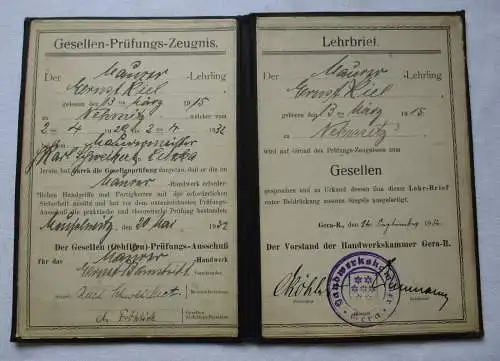 Gesellen-Prüfungs-Zeugnis.
Der Maurer -Lehrling
Ernst Kiel
geboren den 13 ten März 1915
zu welcher vom
2-4 bis 2-4 1932
beim Maurermeister
Karl
lernte, hat durch die Gesellenprüfung dargetan, daß er die im
Maurer -Handwerk erforder-
lichen Handgriffe und Fertigkeiten mit der erforderlichen
Sicherheit ausübt und hat vor dem unterzeichneten Prüfungs-
Ausschuß die praktische und theoretische Prüfung bestanden.
den 20 Mai 1932
Der Gesellen (Gehilfen)-Prüfungs-Ausschuß
für das Maurer Handwerk
Ernst
Vorsitzender
Karl
Lehrbrief.
Der Maurer -Lehrling
Ernst Kiel
geboren den 13 ten März 1915
zu
wird auf Grund des Prüfungs-Zeugnisses zum
Gesellen
gesprochen und zu Urkund dessen ihm dieser Lehr-Brief
unter Beidrückung unseres Siegels ausgefertigt.
Gera-R., den September 1932
Der Vorstand der Handwerkskammer Gera-R.
Handwerkskammer
Gera